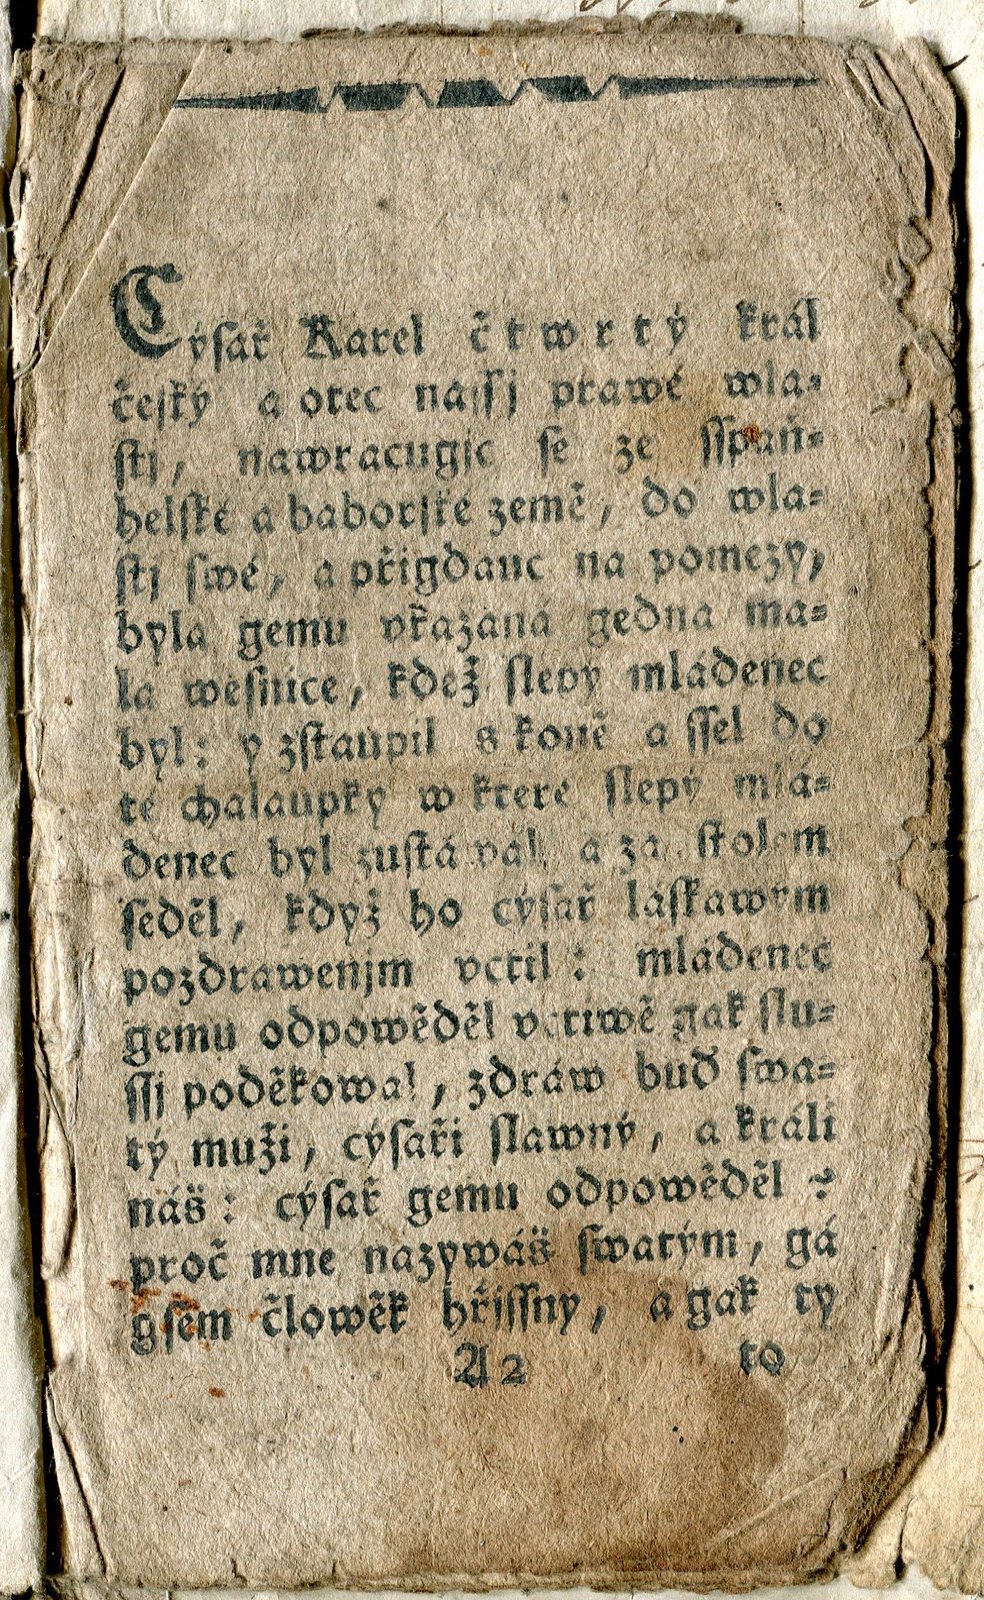 Cýſař Karel čtwrtý král
český a otec naſſj prawé wla⸗
ſtj, nawracugic ſe ze ſſpaň⸗
helſké a baborſké země, do wla⸗
ſtj ſwé, a přigdauc na pomezy,
byla gemu vkazaná gedna ma⸗
la weſnice, kdež ſlepý mladenec
byl: y zſtaupil s koně a ſſel do
té chalaupky w které ſlepý mlá⸗
denec byl zuſtával, a za ſtolem
ſeděl, když ho cýſař láſkawým
pozdrawenjm vctil: mládenec
gemu odpowěděl vctiwě gak ſlu⸗
ſſj poděkowal, zdráw buď ſwa⸗
tý muži, cýſaři ſlawný, a králi
náš: cýſař gemu odpowěděl ?
proč mne nazywáš ſwatým, gá
gſem člowěk hřiſſny, a gak ty
A 2 to